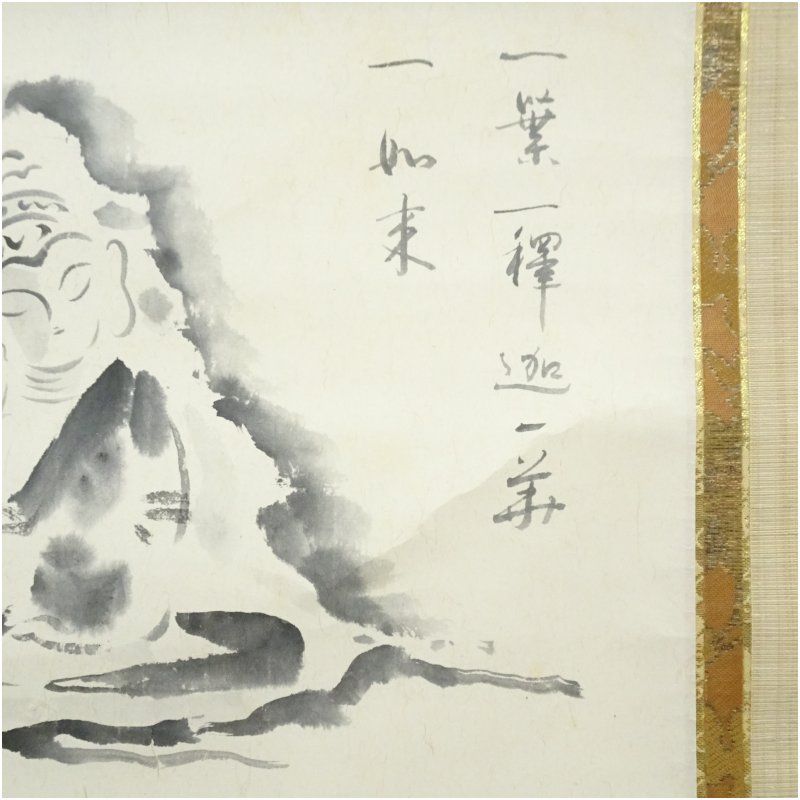 一葉一釋迦一華
一如来